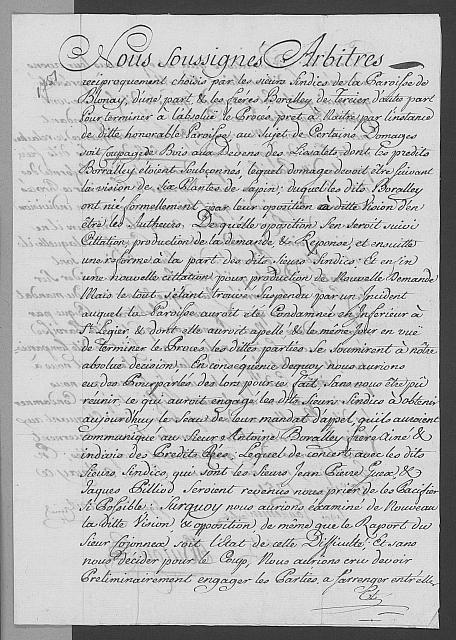 Nous Soussignes Arbitres
reciproquement choisis par les sieurs Sindics de la Paroisse de
Blonay, d'une part, & les freres Boralley de Tercier d'autre part
Pour terminer à l'absolüe le Procès pret à Naitre par l'instance
de ditte honorable Paroisse au Sujet de Certains Domages
soit Coupage de Bois aux Devens des Pissalets, dont les predits
Borralley étoient Soubçonnes, lequel domage devoit être suivant
la vision de Six Plantes de Sapin; duquel les dits Boralley
ont nié formellement par leur oposition à ditte Vision d'en
être les Autheurs. De quelle oposition S'en seroit suivi
Cittation, production de la demande & Reponse; et ensuitte
une reforme a la part des dits Sieurs Sindics & en in
une nouvelle cittation pour production de Nouvelle Demande
Mais le tout S'étant trouvé Suspendu par un Incident
auquel la Paroisse auroit été Condamnée en Inferieur à
St Legier & dont elle auroit apellé & le même Jour en vüe
de terminer le Procès les dittes parties se soumirent à nôtre
absolue decision; En consequence dequoy nous aurions
eu des Pourparlés des lors pour ce fait, Sans nous être pû
reünir, ce qui auroit engagé les dits Sieurs Sindics à obtenir
aujourdhuy le Seau de leur mandat d'apel, qu'ils auroient
communiqué au Sieur Antoine Borralley frere Ainé &
indivis des Predits ; Lequel de concert avec les dits
Sieurs Sindics, qui sont les Sieurs Jean Pierre &
Jaques Pilliod Seroient revenus nous prier de les Pacifier
Si Possible: Surquoy nous aurions examiné de Nouveau
la ditte Vision & oposition de même que le Raport du
Sieur soit l'Etat de cette Difficulté; Et sans
nous décider pour le Coup, Nous aurions cru devoir
Preliminairement engager les Parties, a s'arrenger entr'elle
Et